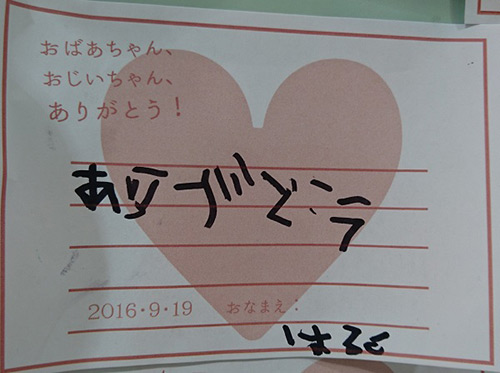 おばあちゃん、
おじいちゃん、
ありがとう！
ありがとう
2016・9・19 おなまえ：
はると